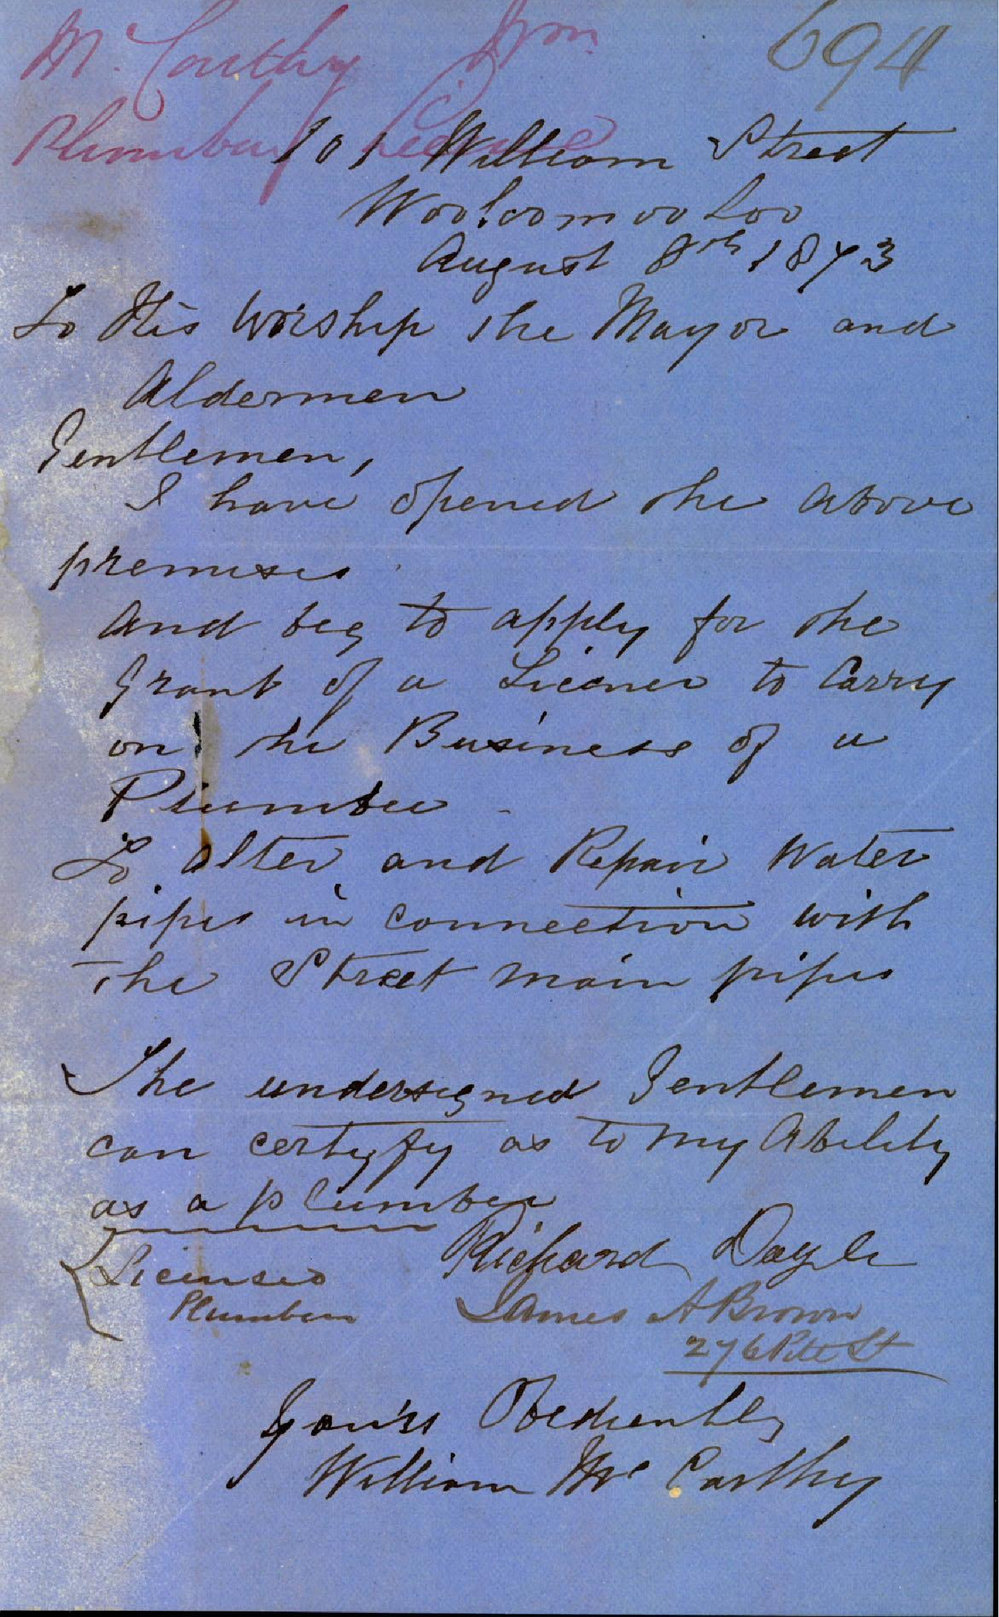 McCarthy Wm.
694
Plumbing License
101 William Street
Wooloomooloo
August 8th 1873
To His Worship the Mayor and
Aldermen
Gentlemen,
I have opened the above
premises
And beg to apply for the
Grant of a License to Carry
on the Business of a
Plumber
To alter and Repair Water
pipes in connection with
The Street main pipes
The undersigned Gentlemen
can certyfy as to my Ability
as a plumber
Licensed Richard Doyle
Plumbers James A Brown
276 Pitt St
Your's Obediently
William McCarthy